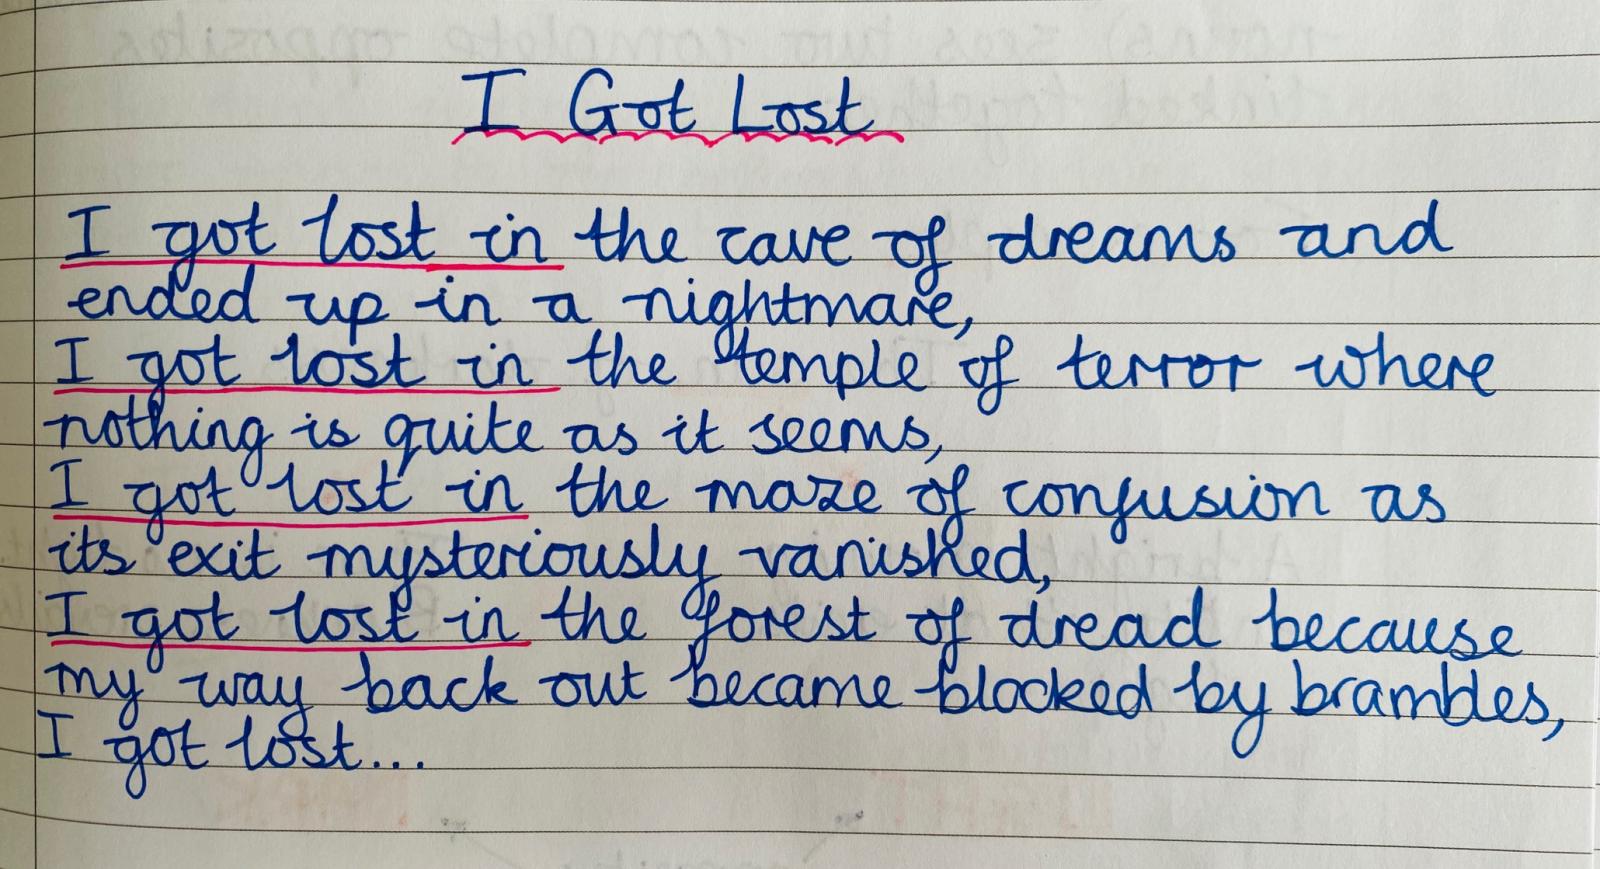 I Got Lost
I got lost in the cave of dreams and
ended up in a nightmare,
I got lost in the temple of terror where
nothing is quite as it seems,
I got lost in the maze of confusion as
its exit mysteriously vanished,
I got lost in the forest of dread because
my way back out became blocked by brambles,
I got lost...